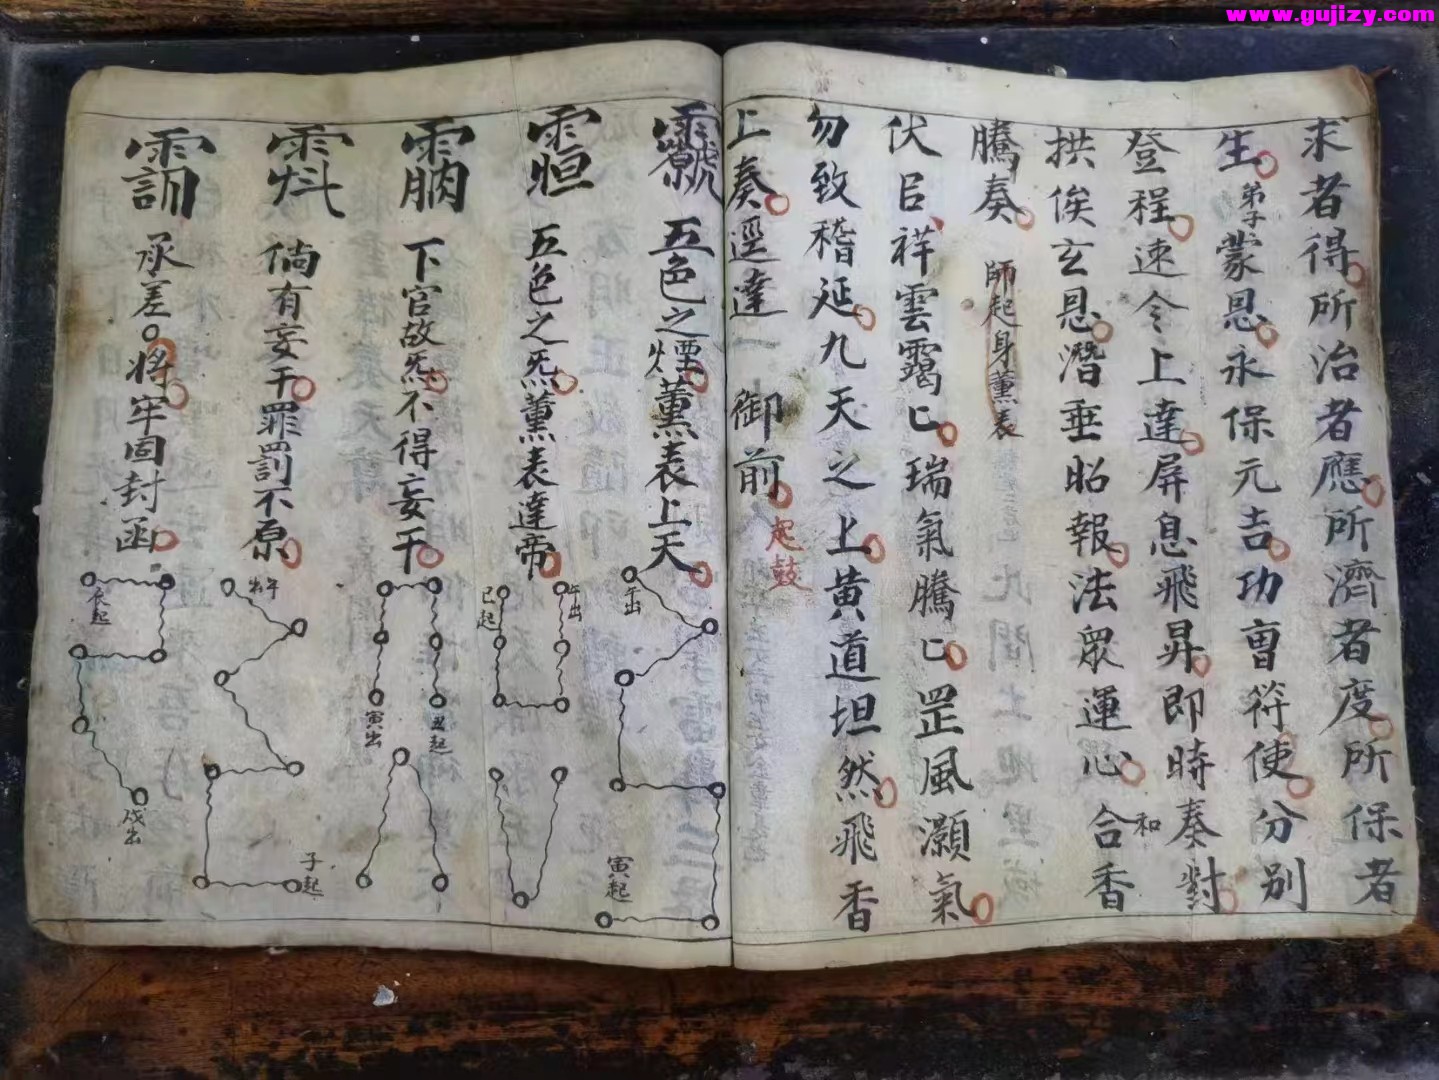 www.gujizy.com
求者得所治者應所濟者度所保者
生弟子蒙恩永保元吉功曹符使分別
登程速令上達屏息飛昇即時奏對
拱俟玄恩潛垂昭報法眾運心合香
和
騰奏 師起身薰表
伏臣祥雲靄匕瑞氣騰匕罡風灝氣
勿致稽延九天之上黄道坦然飛香
上奏逕達 御前
起鼓
五色之煙薰表上天
五色之炁薰表達帝
下官故炁不得妄干
倘有妄干罪罰不原
承差將牢固封函
午出
寅起
巳起
午出
寅出
丑起
子起
辰起
戌出